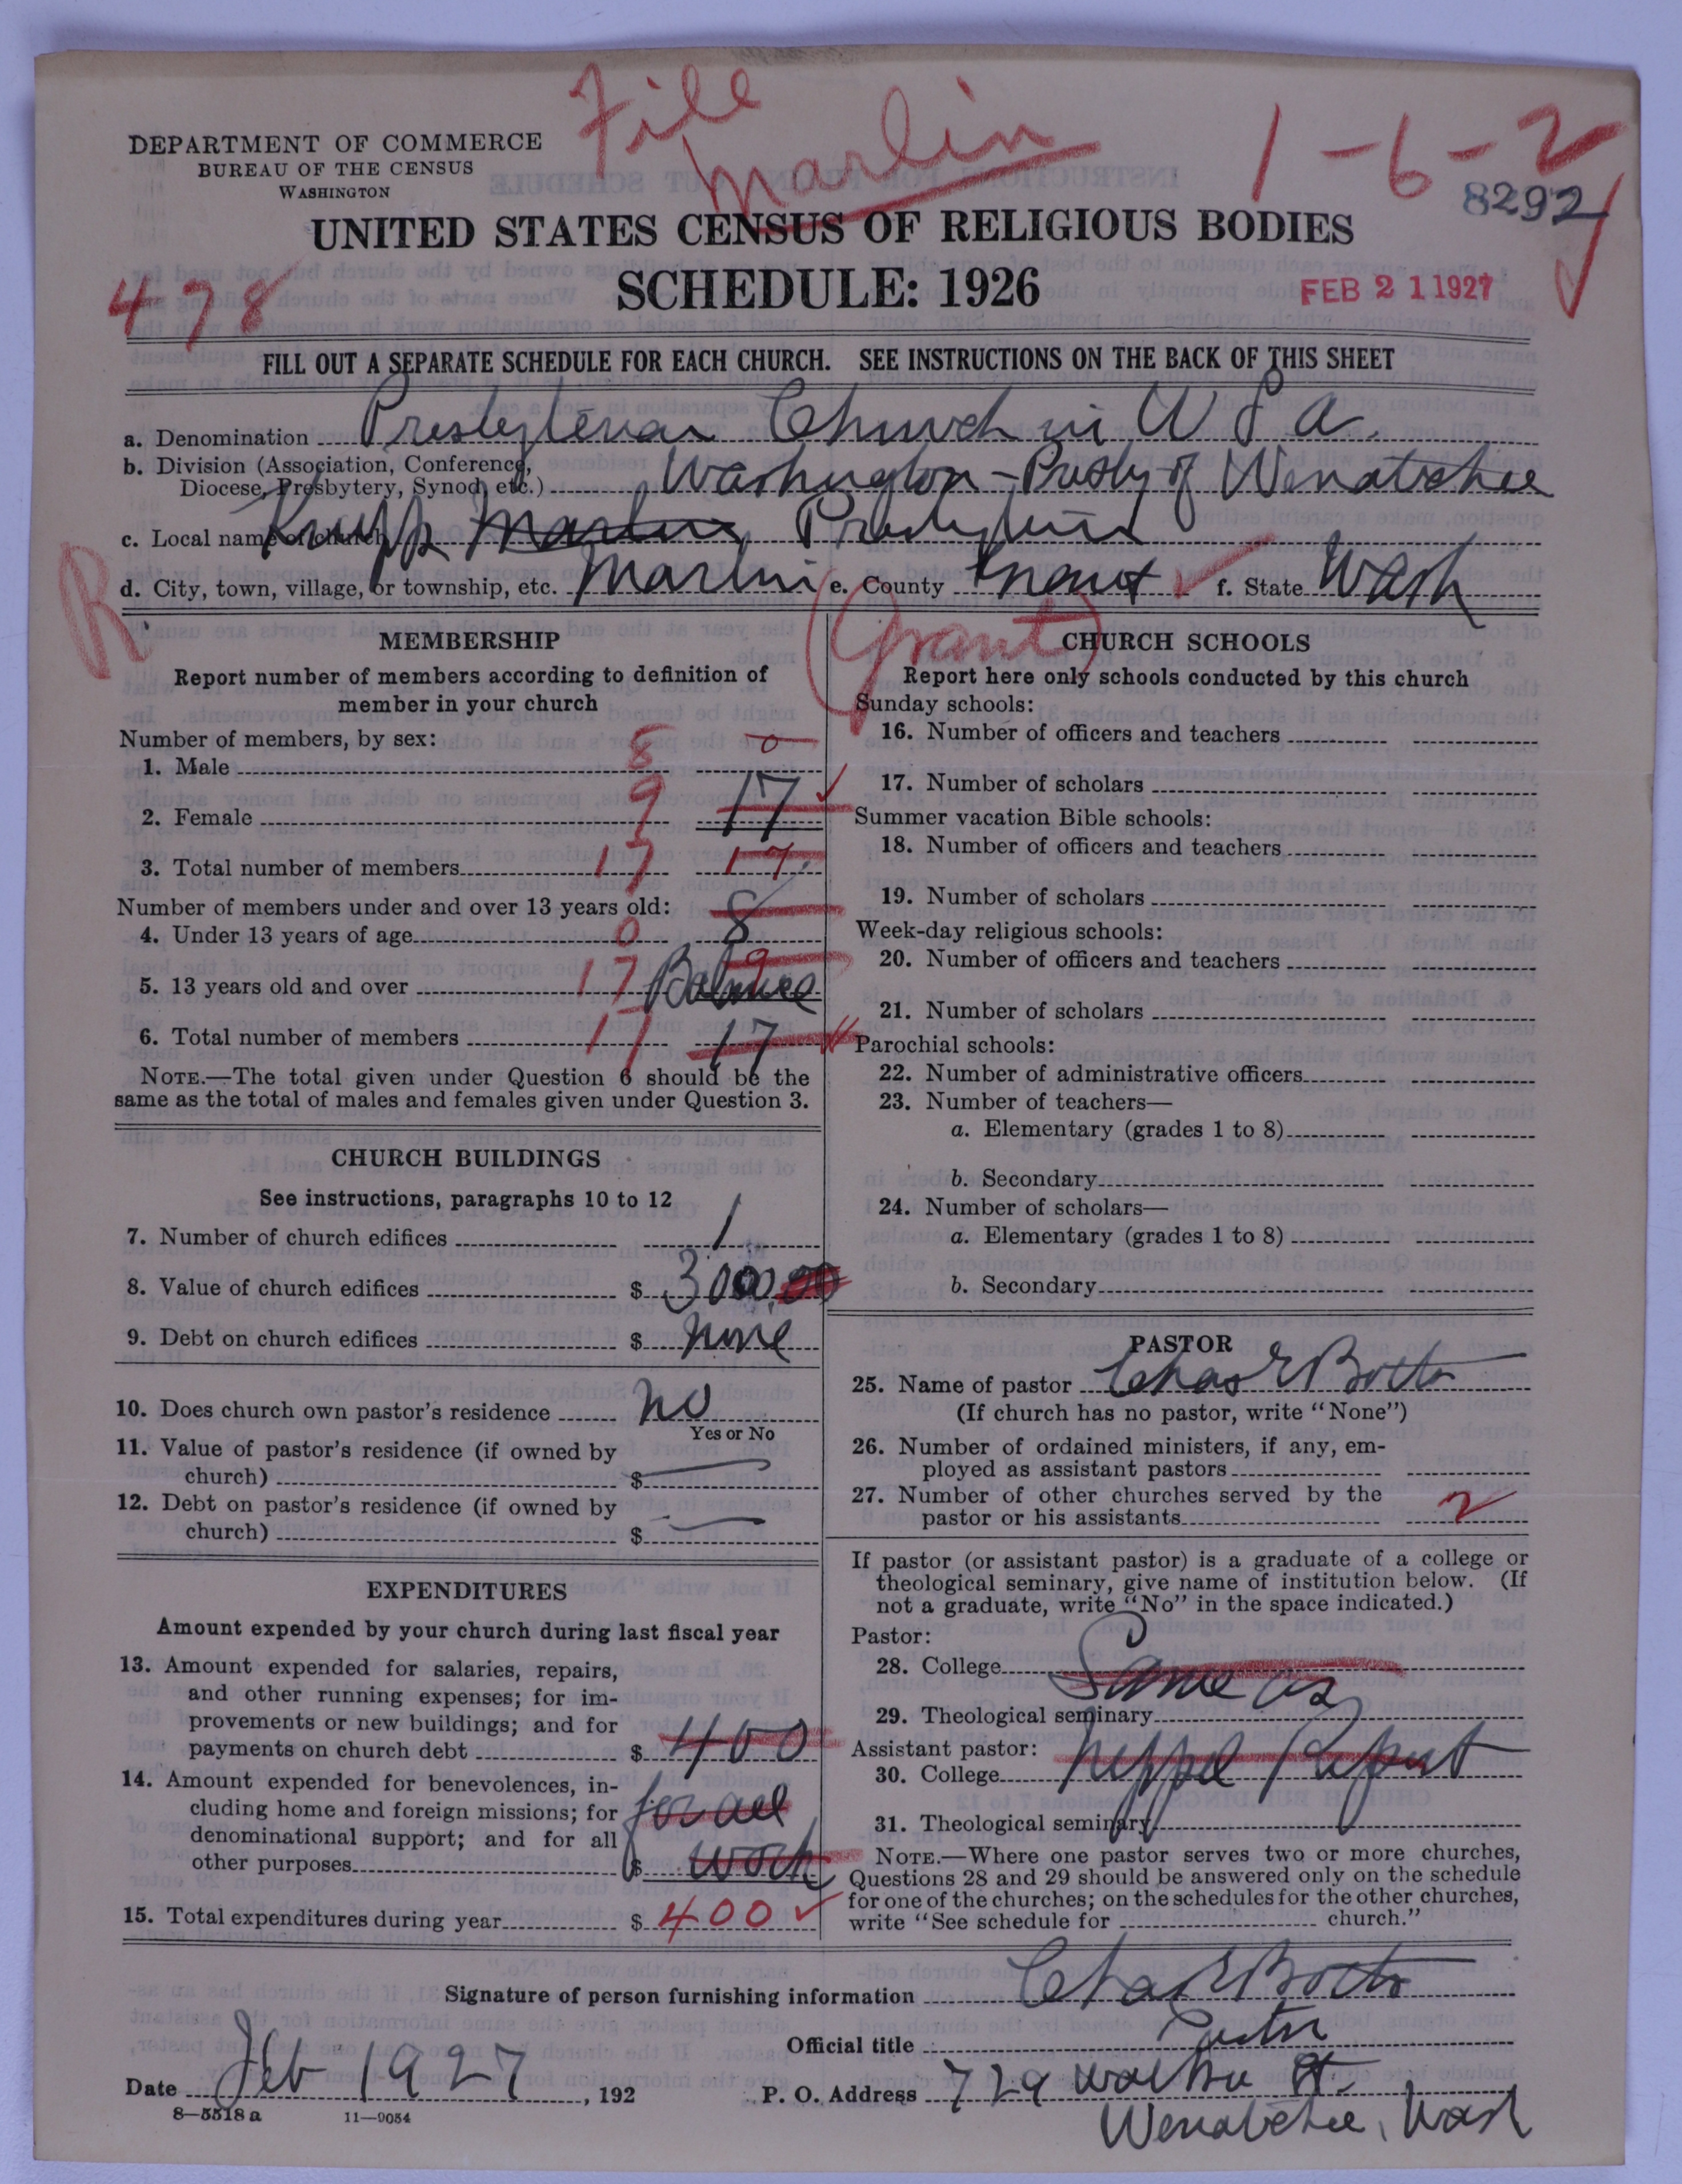 File
Marlin
1-6-2
8292
DEPARTMENT OF COMMERCE
BUREAU OF THE CENSUS
WASHINGTON
UNITED STATES CENSUS OF RELIGIOUS BODIES
SCHEDULE: 1926
478
FEB 21 1927
FILL OUT A SEPARATE SCHEDULE FOR EACH CHURCH. SEE INSTRUCTIONS ON THE BACK OF THIS SHEET
a. Denomination Presbyterian Church in U S A.
b. Division (Association, Conference, Diocese, Presbytery, Synod, etc.) Washington - Presby of Wenatchee
c. Local name of church Krupp Marlin Presbyterian
R
d. City, town, village, or township, etc. Marlin e. County f. State Wash
(Grant)
MEMBERSHIP
Report number of members according to definition of
member in your church
Number of members, by sex:
1. Male 8 0
2. Female 9 17
3. Total number of members 17 17
Number of members under and over 13 years old:
4. Under 13 years of age 0 8
5. 13 years old and over 17 9 Balance
6. Total number of members 17 17
NOTE.—The total given under Question 6 should be the
same as the total of males and females given under Question 3.
CHURCH BUILDINGS
See instructions, paragraphs 10 to 12
7. Number of church edifices 1
8. Value of church edifices $ 3000.00
9. Debt on church edifices $ None
10. Does church own pastor's residence No
Yes or No
11. Value of pastor's residence (if owned by
church) $
12. Debt on pastor's residence (if owned by
church) $
EXPENDITURES
Amount expended by your church during last fiscal year
13. Amount expended for salaries, repairs,
and other running expenses; for im-
provements or new buildings; and for
payments on church debt $ 400
14. Amount expended for benevolences, in-
cluding home and foreign missions; for
denominational support; and for all
other purposes $ for all work
15. Total expenditures during year $ 400
CHURCH SCHOOLS
Report here only schools conducted by this church
Sunday schools:
16. Number of officers and teachers
17. Number of scholars
Summer vacation Bible schools:
18. Number of officers and teachers
19. Number of scholars
Week-day religious schools:
20. Number of officers and teachers
21. Number of scholars
Parochial schools:
22. Number of administrative officers
23. Number of teachers—
a. Elementary (grades 1 to 8)
b. Secondary
24. Number of scholars—
a. Elementary (grades 1 to 8)
b. Secondary
PASTOR
25. Name of pastor Chas E Botts
(If church has no pastor, write "None")
26. Number of ordained ministers, if any, em-
ployed as assistant pastors
27. Number of other churches served by the
pastor or his assistants 2
If pastor (or assistant pastor) is a graduate of a college or
theological seminary, give name of institution below. (If
not a graduate, write "No" in the space indicated.)
Pastor:
28. College Same as
29. Theological seminary
Assistant pastor:
30. College Neppel Report
31. Theological seminary
NOTE.—Where one pastor serves two or more churches,
Questions 28 and 29 should be answered only on the schedule
for one of the churches; on the schedules for the other churches,
write "See schedule for church."
Signature of person furnishing information Chas E Botts
Official title Pastor
Date Feb 1927, 192
P. O. Address 729 St.
Wenatchee, Wash
8-5518 a 11-9054